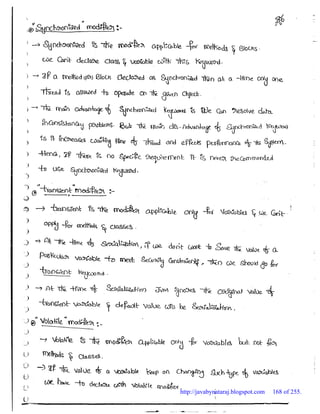 86
* "Synchronized" modifier :-
→ Synchronized is the modifier applicable for methods & Blocks.
We can't declare class & variable with this keyword.
→ If a method (or) Block declared as Synchronized then at a time only one
Thread is allowed to operate on the given object.
→ The main advantage of Synchronized keyword is we can resolve data
inconsistency problems. But the main dis-advantage of Synchronized keyword
is it increases waiting time of thread and effects performance of the System.
Hence, if there is no specific requirement it is never recommended
to use Synchronized keyword.
* "transient" modifier :-
→ transient is the modifier applicable only for variables & we can't
apply for methods & classes.
→ At the time of Serialization, if we don't want to save the value of a
particular variable to meet security constraints, then we should go for
transient keyword.
→ At the time of Serialization Jvm ignores the original value of
transient variable & default value will be Serialization.
* Volatile modifier :-
→ Volatile is the modifier applicable only for variables but not for
methods & classes.
→ If the value of a variable keep on changing such type of variables
we have to declare with volatile modifier.
http://javabynataraj.blogspot.com 168 of 255.